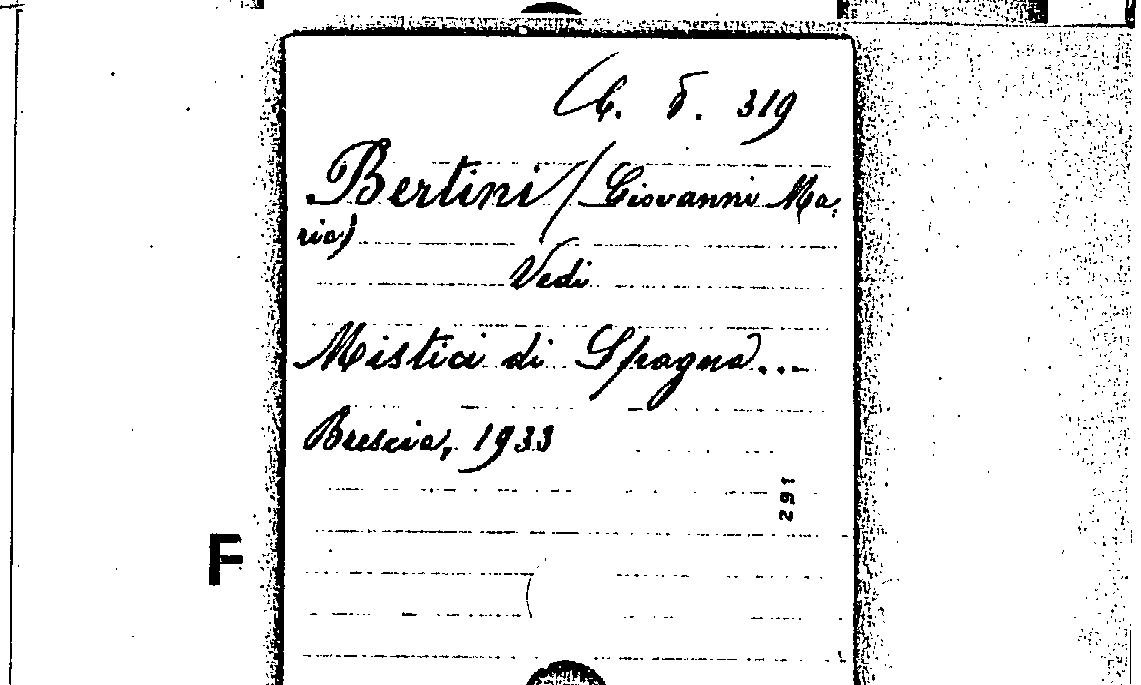 6. 319
Bertini (Giovanni Ma-
ria)
Vedi
Mistici di Spagna...
Brescia, 1933
291
F